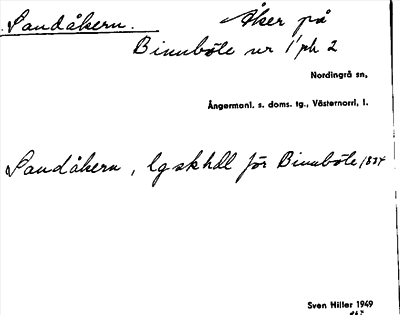 Sandåkern.
Åker på
Binnböle nr 1 ph 2
Nordingrå sn,
Ångermanl. s. doms. tg., Västernorrl, l.
Sandåkern, lgskhdl för Binnböle 1834
Sven Hiller 1949